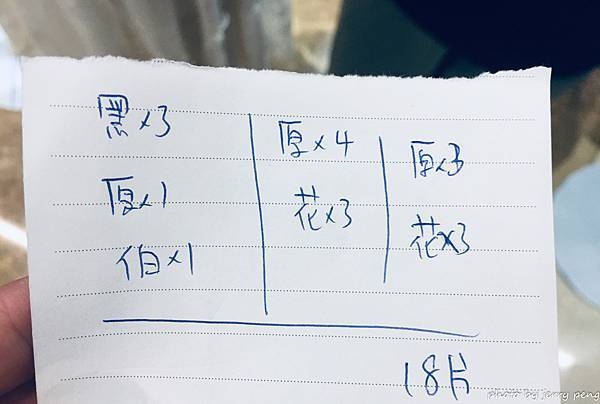 黑x3
原x1
伯x1
原x4
花x3
原x3
花x3
18片
photo by jerry peng